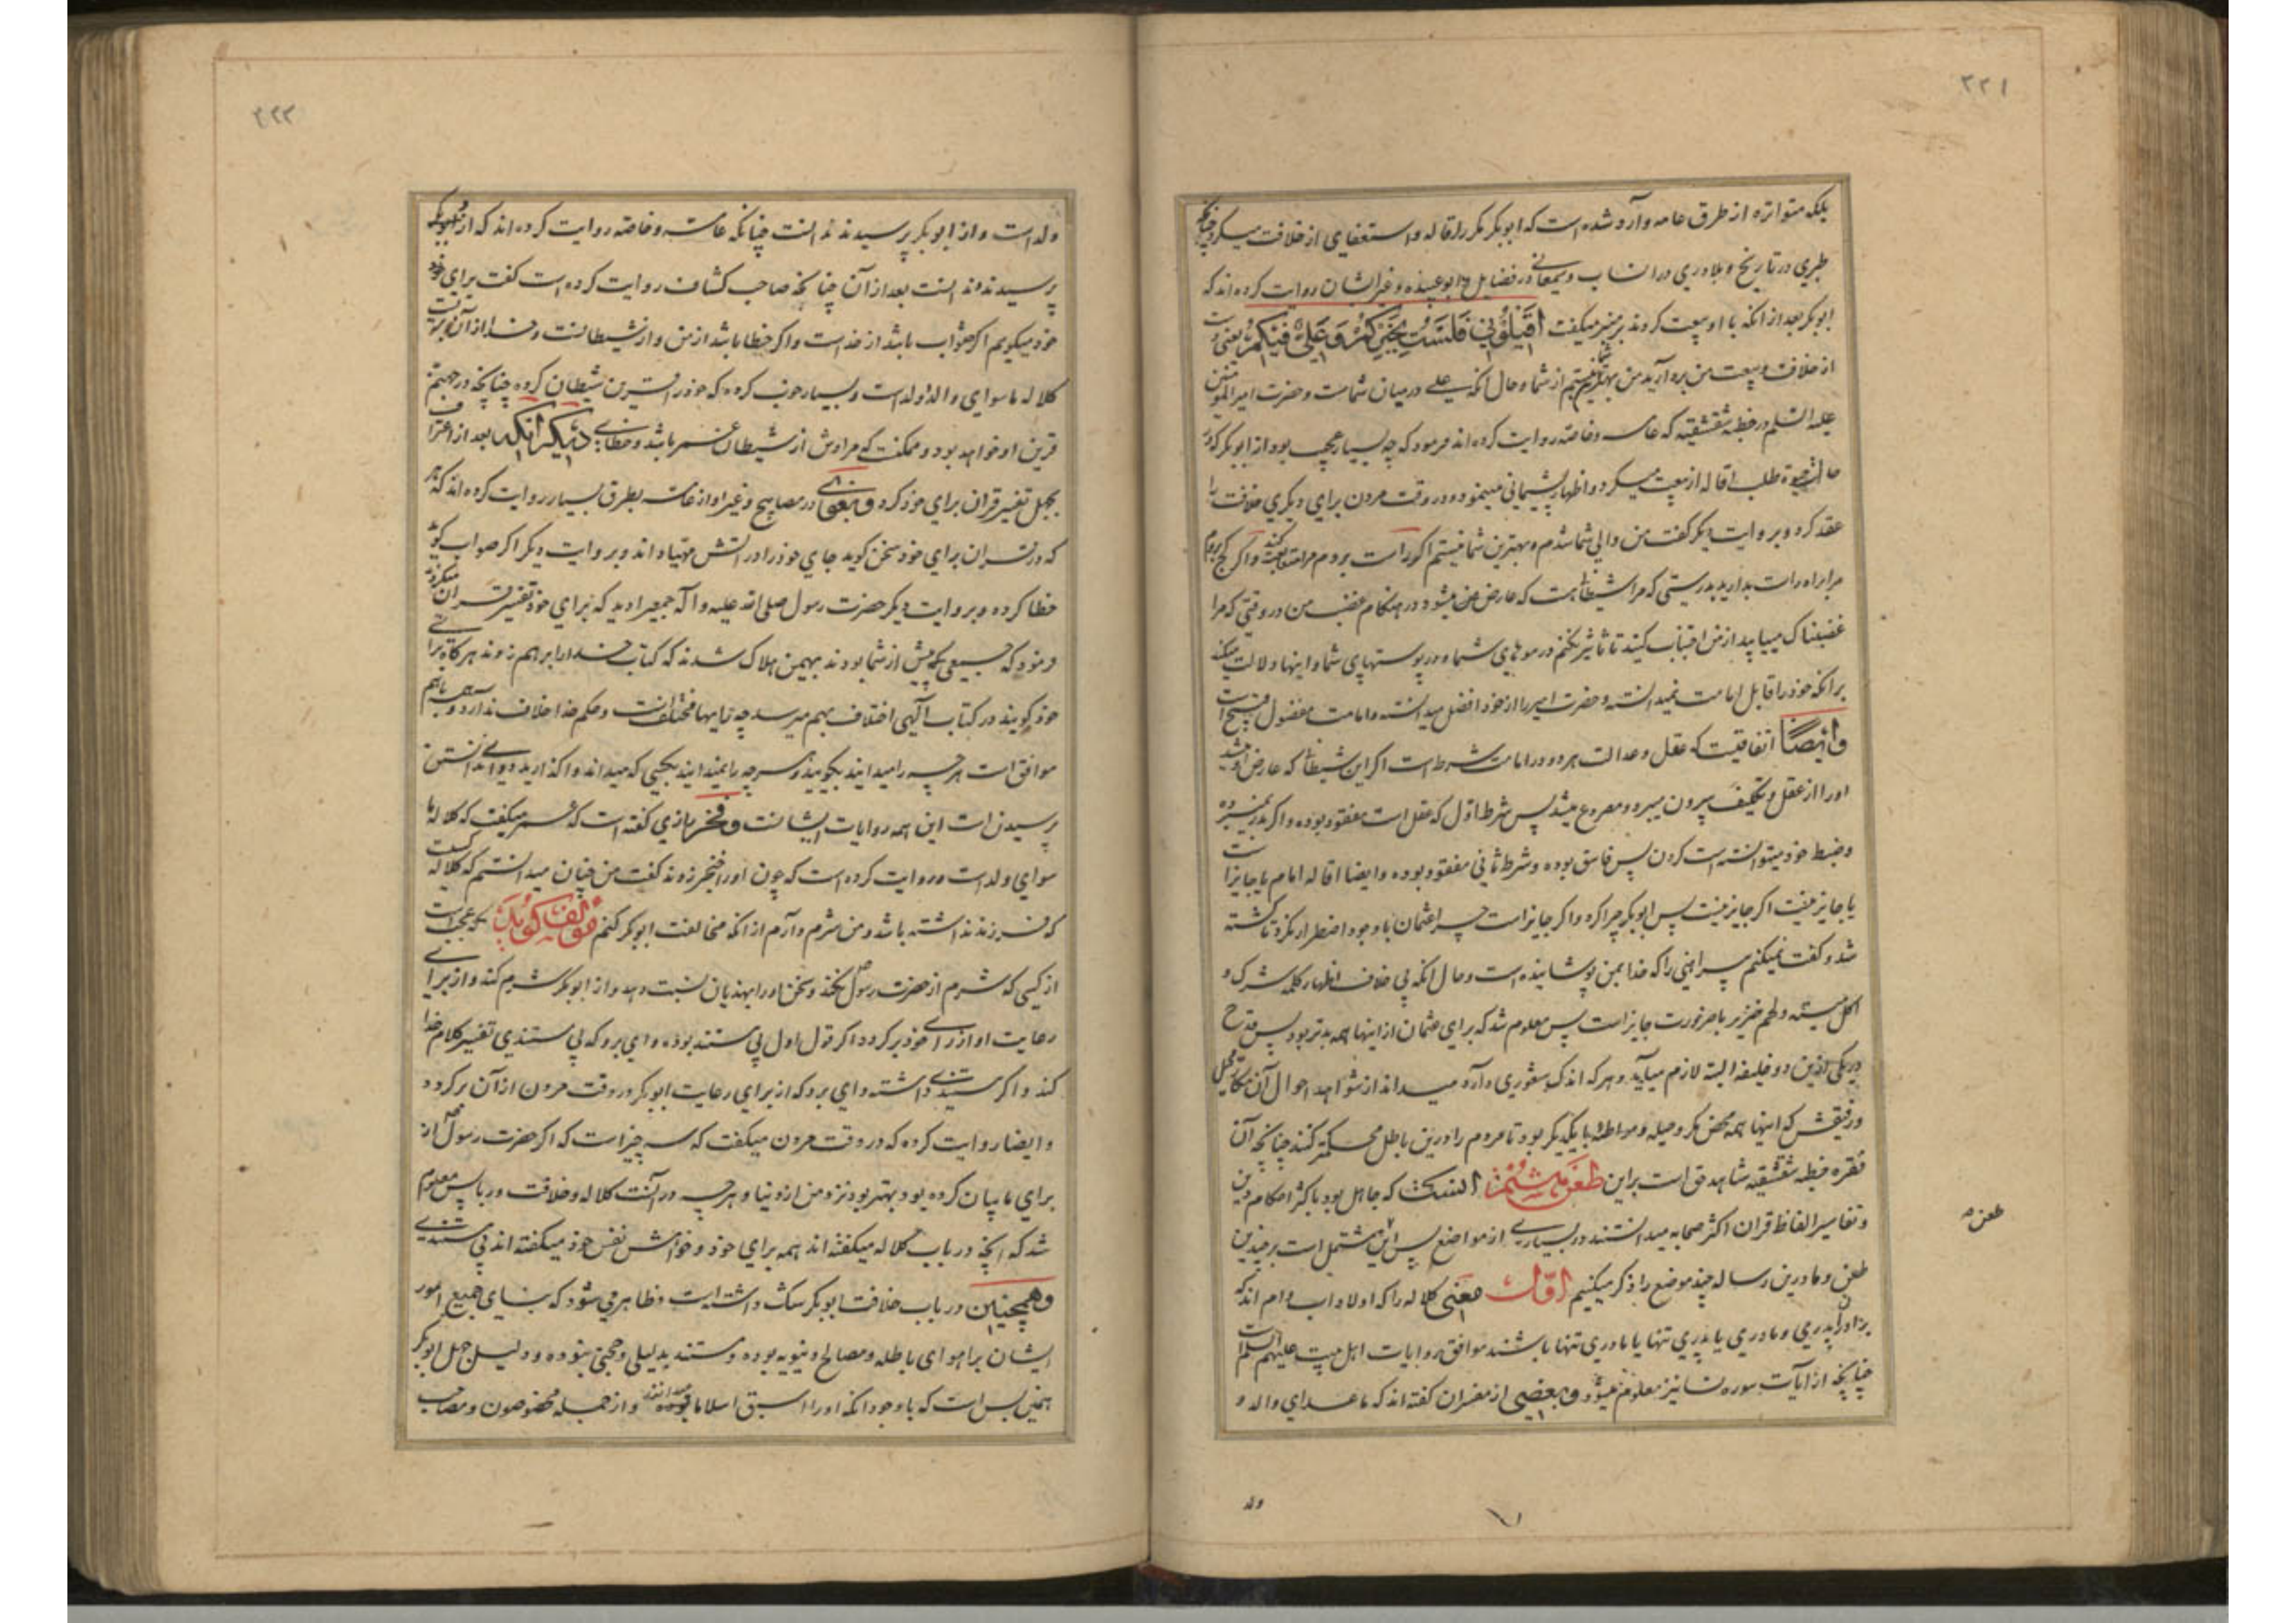 ۲۲۱
بلکه متواتره از طرق عامه وارد شده است که ابوبکر مکرر اقاله و استعفای از خلافت میکرد چنانچه
طبری در تاریخ و بلادری در انساب و سمعانی در فضایل و ابو عبیده و غیر ایشان روایت کرده اند که
ابوبکر بعد از انکه با او بیعت کردند بر منبر میگفت اقیلونی فلست بخیرکم و علی فیکم یعنی دست
از خلافت و بیعت من بردارید من بهترین شما نیستم از شما و حال انکه علی در میان شماست و حضرت امیر المومنین
علیه السلم در خطبه شقشقیه که عامه و خاصه روایت کرده اند فرمود که چه بسیار عجیب بود از ابوبکر که در
حالت حیوة طلب اقاله از بیعت میکرد و اظهار پشیمانی مینمود و در وقت مردن برای دیکری خلافت را
عقد کرد و بروایت دیکر کفت من والی شما شدم و بهترین شما نیستم اکر راست بروم مرا متابعت کنید و اکر کج بروم
مرا براه راست بدارید بدرستی که مرا شیطانی هست که عارض من میشود در هنکام غضب من در وقتی که مرا
غضبناک بیابید از من اجتناب کنید تا تاثیر نکنم در موهای شما و در پوستهای شما و اینها دلالت میکند
بر انکه خود را قابل امامت نمیدانسته و حضرت امیر را از خود افضل میدانسته و امامت مفضول قبیح است
و ایضا اتفاقیست که عقل و عدالت هر دو در امامت شرط است اکر این شیطان که عارض او میشد
او را از عقل و تکلیف بیرون میبرد و مصروع میشد پس شرط اول که عقل است مفقود بوده و اکر بدر نمیبرده
و ضبط خود میتوانسته است کردن پس فاسق بوده و شرط ثانی مفقود بوده و ایضا اقاله امام یا جایز است
یا جایز نیست اکر جایز نیست پس ابوبکر چرا کرد و اکر جایز است چرا عثمان با وجود اضطرار نکرد تا کشته
شد و کفت نمیکنم پیراهنی را که خدا بمن پوشانیده است و حال انکه بی خلاف اظهار کلمه شرک و
اکل میته و لحم خنزیر با ضرورت جایز است پس معلوم شد که برای عثمان از اینها همه بدتر بود پس قدح
در یکی ازین دو خلیفه البته لازم میآید و هر که اندک شعوری دارد میداند از شواهد احوال آن مکار محیل
و رفیقش که اینها همه محض مکر و حیله و مواطاة با یکدیکر بود تا مردم را درین باطل محکمتر کنند چنانچه آن
فقره خطبه شقشقیه شاهد حق است براین طعن ششم انست که جاهل بود باکثر احکام دین
و تفاسیر الفاظ قران اکثر صحابه میدانستند در بسیاری از مواضع پس این مشتمل است بر چندین
طعن و ما درین رساله چند موضع را ذکر میکنیم اول معنی کلاله را که اولاد اب و ام اند که
برادران پدری و مادری یا پدری تنها یا مادری تنها باشند موافق روایات اهل بیت علیهم السلام
چنانچه از ایات سوره نسا نیز معلوم میشود و بعضی از مفسران کفته اند که ماعدای والد و
طعن ۶
ولد
۲۲۲
ولد است و از ابوبکر پرسیدند ندانست چنانکه عامه و خاصه روایت کرده اند که از ابوبکر
پرسیدند ندانست بعد از آن چنانچه صاحب کشاف روایت کرده است کفت برای خود
خود میکویم اکر صواب باشد از خداست و اکر خطا باشد از من و از شیطانست و خدا از آن بریست
کلاله ماسوای والد و ولد است و بسیار خوب کرده که خود را قرین شیطان کرده چنانچه در جهنم
قرین او خواهد بود و ممکنست که مرادش از شیطان عمر باشد و خطا دیکر انکه بعد از اعتراف
بجهل تفسیر قران برای خود کرد و بغوی در مصابیح و غیر او از عامه بطرق بسیار روایت کرده اند که هر
که در قران برای خود سخن کوید جای خود را در اتش مهیا داند و بروایت دیکر اکر صواب کوید
خطا کرده و بروایت دیکر حضرت رسول صلی الله علیه و آله جمعی را دید که برای خود تفسیر قران میکردند
فرمود که جمعی که پیش از شما بودند بهمین هلاک شدند که کتاب خدا را برهم زدند هرکاه برای
خود کویند در کتاب الهی اختلاف بهم میرسد چه رایها مختلف است و حکم خدا اختلاف ندارد و همه باهم
موافق است هر چه را میدانید بکویید و هر چه را نمیدانید بکسی که میداند واکذارید دوای ندانستن
پرسیدن است این همه روایات ایشانست و فخر رازی کفته است که عمر میکفت که کلاله ما
سوای ولد است و روایت کرده است که چون او را خنجر زدند کفت من چنان میدانستم که کلاله کسیست
که فرزند نداشته باشد و من شرم دارم از انکه مخالفت ابوبکر کنم مؤلف کوید که عجب است
از کسی که شرم از حضرت رسول ص نکند و سخن او را بهذیان نسبت دهد و از ابوبکر شرم کند و از برای
رعایت او از رای خود برکردد اکر قول اول بی مستند بوده وای برو که بی مستندی تفسیر کلام خدا
کند و اکر مستندی داشته وای برو که از برای رعایت ابوبکر در وقت مردن از آن برکردد
و ایضا روایت کرده که در وقت مردن میکفت که سه چیز است که اکر حضرت رسول ص از
برای ما بیان کرده بود بهتر بود نزد من از دنیا و هر چه در آنست کلاله و خلافت و ربا پس معلوم
شد که انچه در باب کلاله میکفته اند همه برای خود و خواهش نفس خود میکفته اند بی مستندی
و همچنین در باب خلافت ابوبکر شک داشته است و ظاهر می شود که بنای جمیع امور
ایشان بر اهوای باطله و مصالح دنیویه بوده و مستند بدلیلی و حجتی نبوده و دلیل جهل ابوبکر
همین بس است که با وجود انکه او را اسبق اسلاما میدانند و از جمله مخصوصون و مصاحب